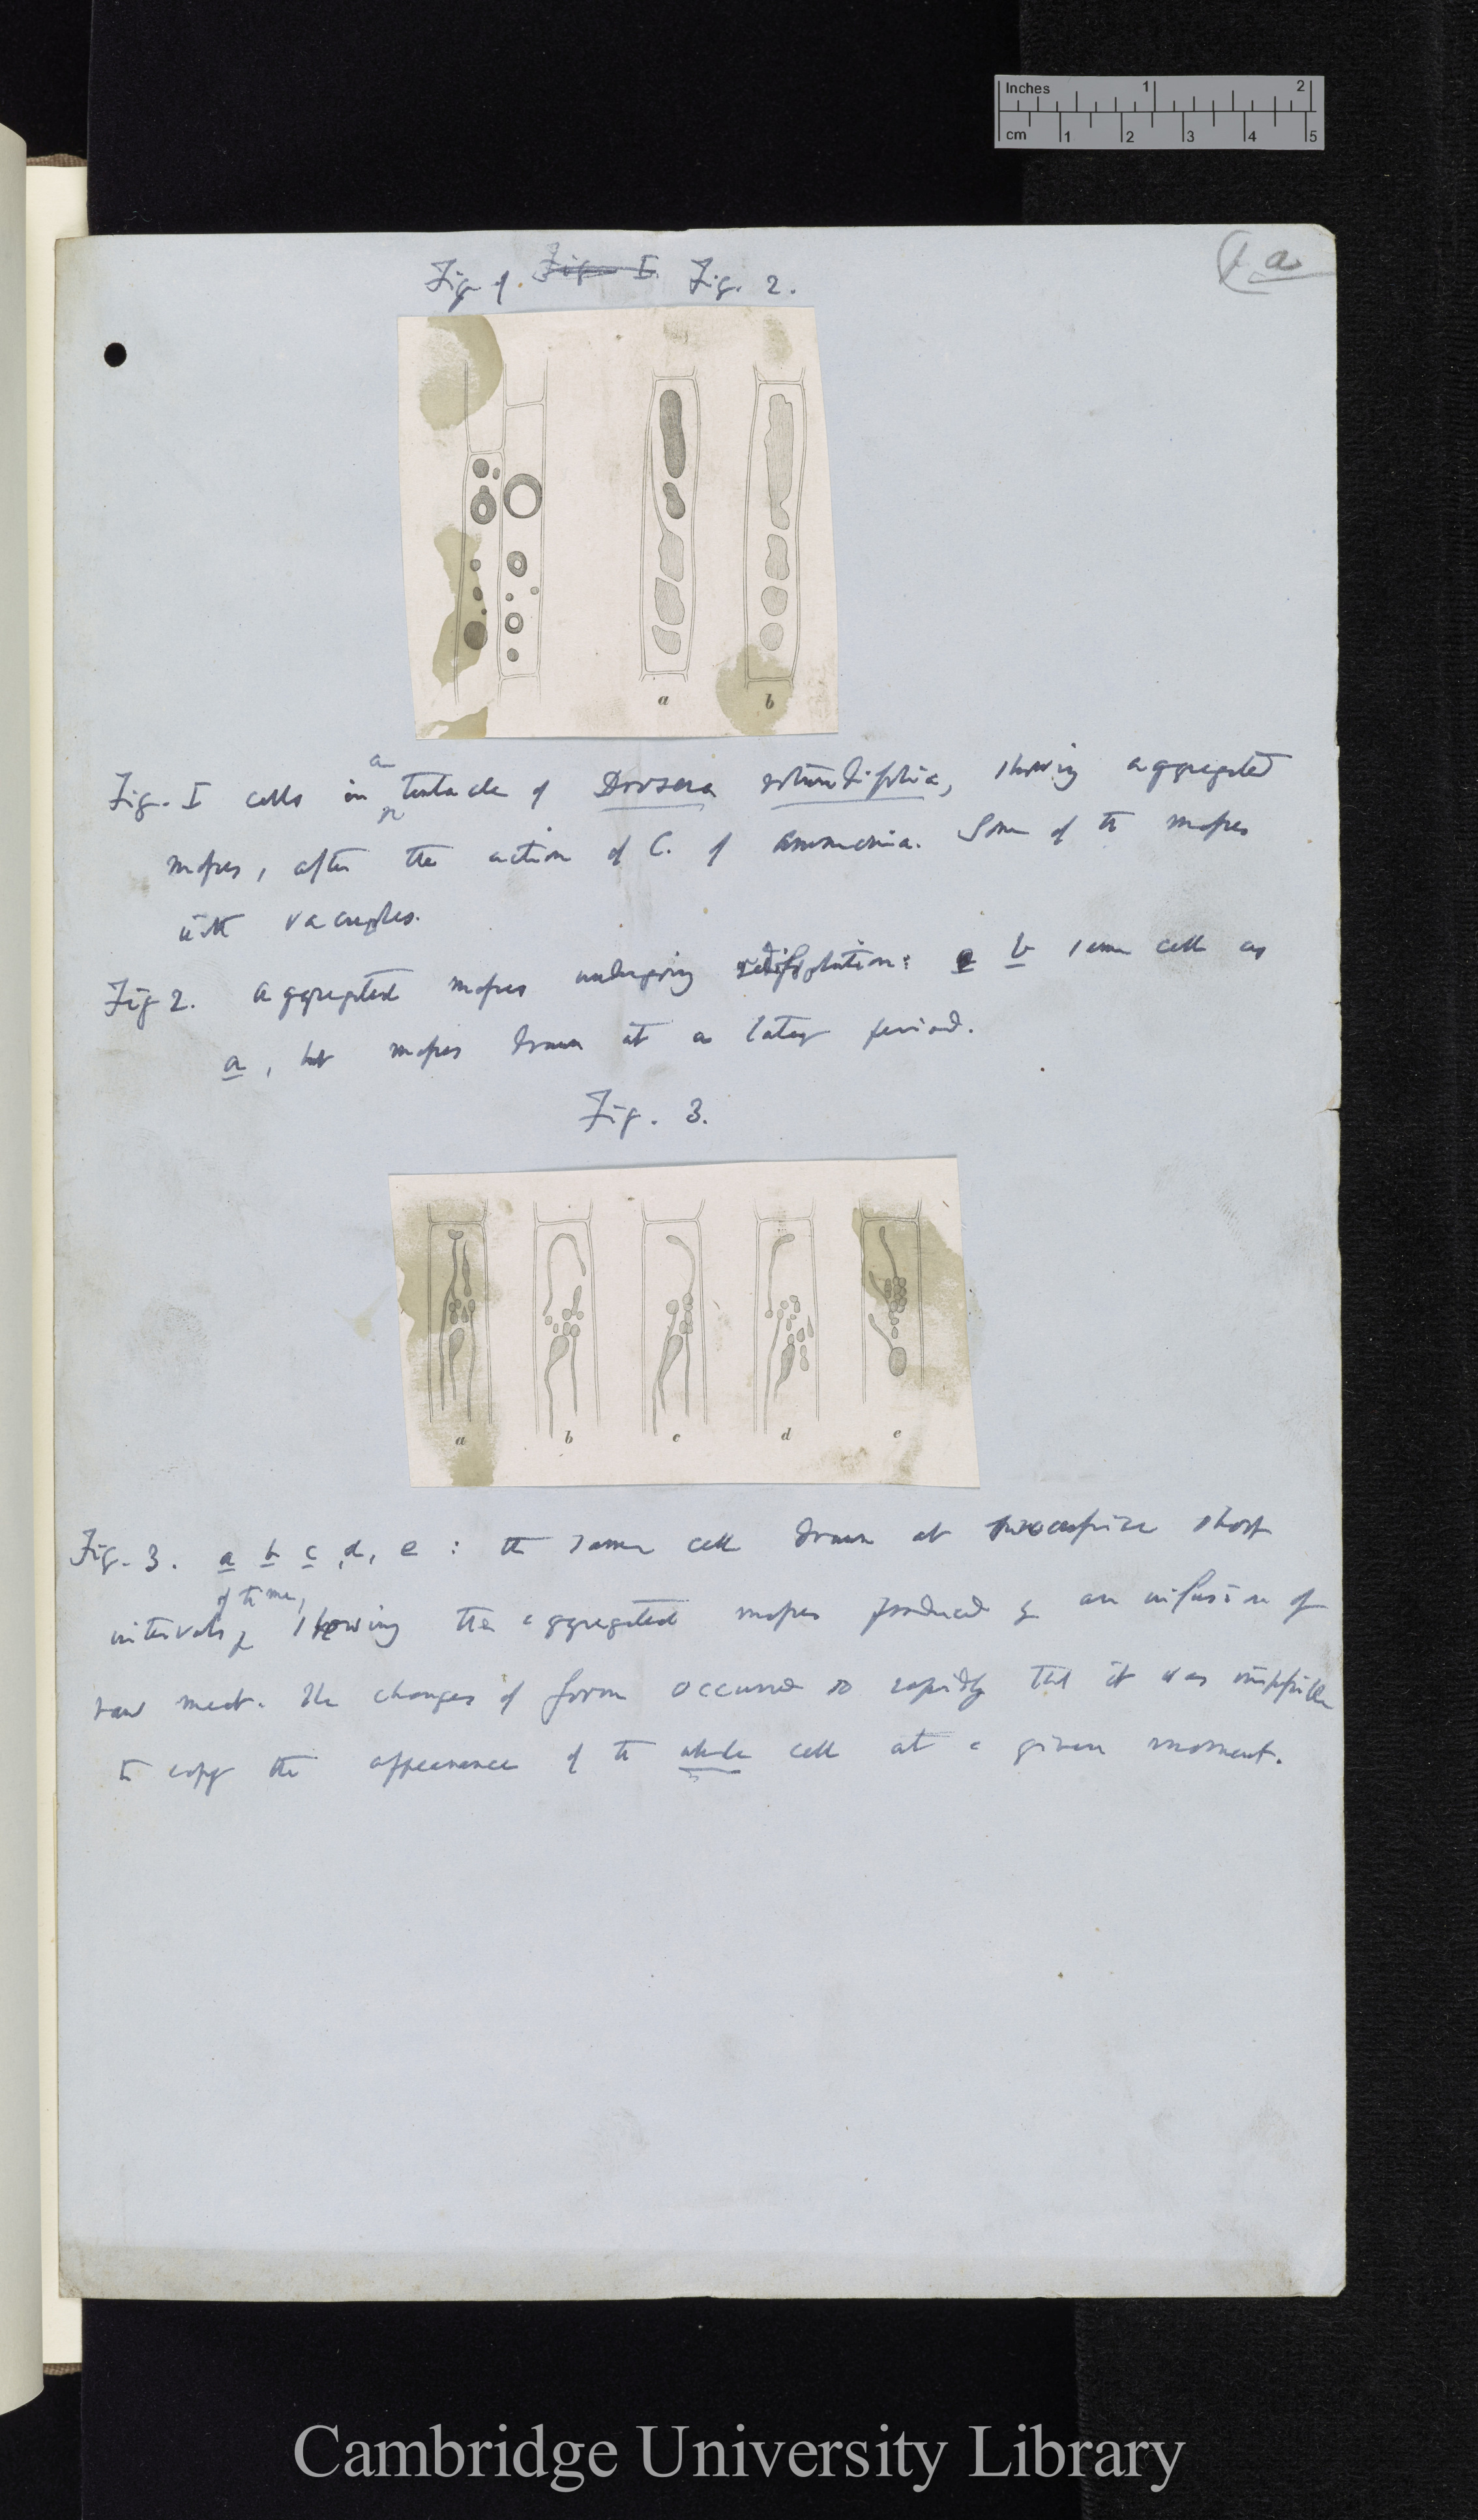 Inches 1 2
cm 1 2 3 4 5
a
Fig 1. Fig. I. Fig. 2.
a b
Fig. I cells in a tentacle of Drosera rotundifolia, showing aggregated
masses, after the action of C. of ammonia. Some of the masses
with vacuoles.
Fig 2. aggregated masses undergoing redissolution: b same cell as
a, but masses drawn at a later period.
Fig. 3.
a b c d e
Fig. 3. a b c, d, e : the same cell drawn at successive short
intervals of time, showing the aggregated masses produced by an infusion of
raw meat. The changes of form occurred so rapidly that it was impossible
to copy the appearance of the whole cell at a given moment.
Cambridge University Library